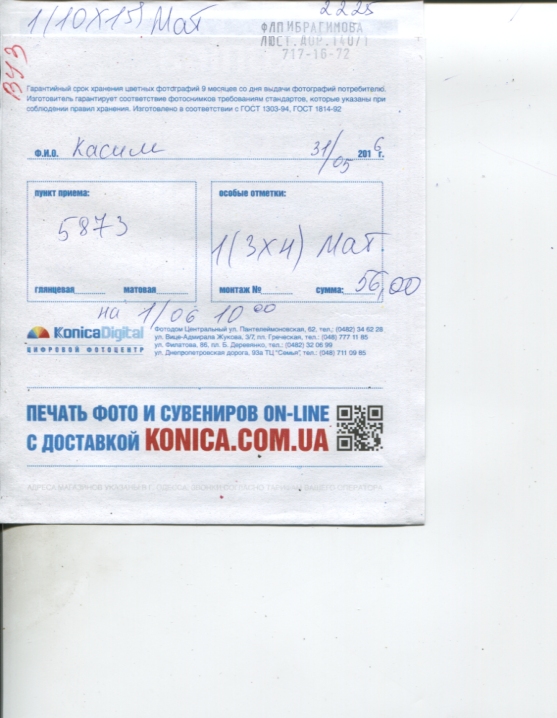 1(10X15) Мат
2225
ФЛП ИБРАГИМОВА
ЛЮСТ.ДОР.140/1
717-16-72
ВУЗ
Гарантийный срок хранения цветных фотографий 9 месяцев со дня выдачи фотографий потребителю.
Изготовитель гарантирует соответствие фотоснимков требованиям стандартов, которые указаны при
соблюдении правил хранения. Изготовлено в соответствии с ГОСТ 1303-94, ГОСТ 1814-92
Ф.И.О. Касим 31/05 2016г.
пункт приема:
5873
глянцевая матовая
особые отметки:
1(3X4) Мат.
монтаж № сумма: 56,00
на 1/06 10 00
KonicaDigital
ЦИФРОВОЙ ФОТОЦЕНТР
Фотодом Центральный ул. Пантелеймоновская, 62, тел.: (0482) 34 62 28
ул. Вице-Адмирала Жукова, 3/7, пл. Греческая, тел.: (048) 777 11 85
ул. Филатова, 86, пл. Б. Деревянко, тел.: (0482) 32 06 99
ул. Днепропетровская дорога, 93а ТЦ "Семья", тел.: (048) 711 09 85
ПЕЧАТЬ ФОТО И СУВЕНИРОВ ON-LINE
С ДОСТАВКОЙ KONICA.COM.UA
АДРЕСА МАГАЗИНОВ УКАЗАНЫ Г. ОДЕССА. ЗВОНКИ СОГЛАСНО ТАРИФАМ ВАШЕГО ОПЕРАТОРА